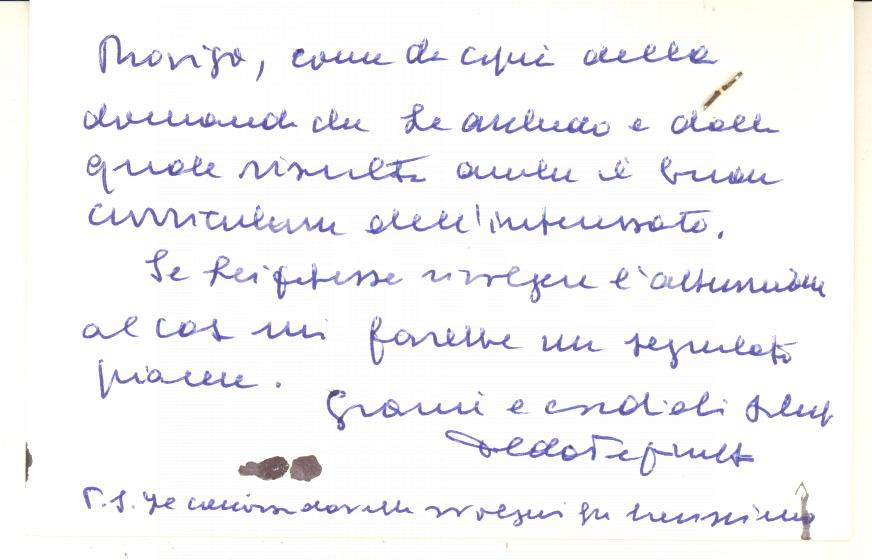 Rovigo, come da copia della
domanda che Le accludo e dalla
quale risulta anche il buon
curriculum dell'interessato.
Se Lei potesse rivolgere l'attenzione
al caso mi farebbe un segnalato
piacere.
Grazie e cordiali saluti
P.S. Le